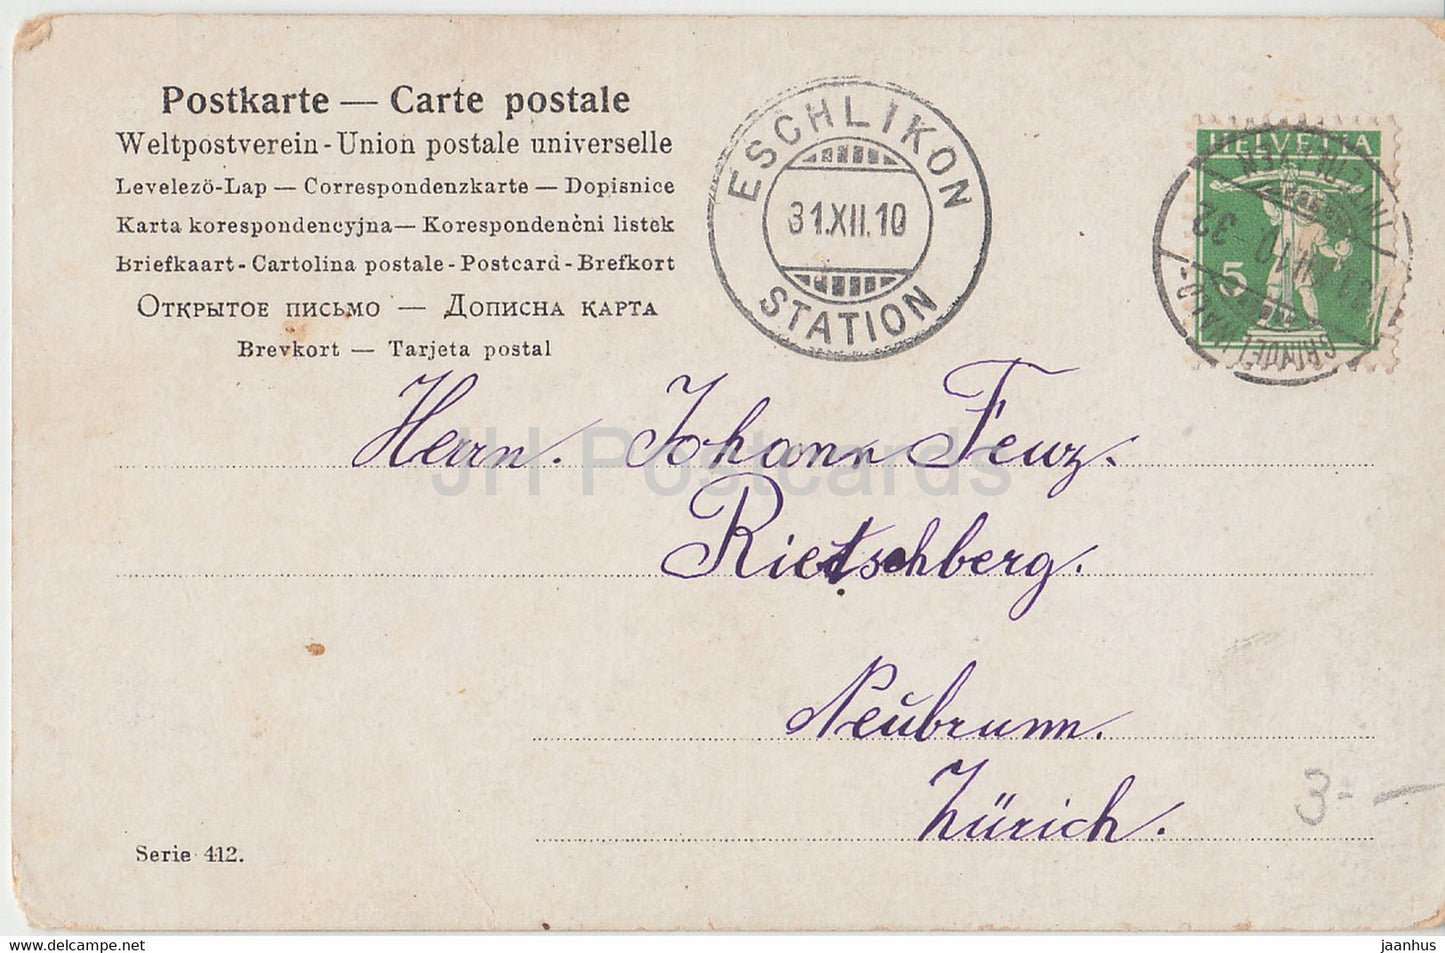 Postkarte — Carte postale
Weltpostverein - Union postale universelle
Levelezö-Lap — Correspondenzkarte — Dopisnice
Karta korespondencyjna — Korespondenční listek
Briefkaart - Cartolina postale - Postcard - Brefkort
Открытое письмо — Дописна карта
Brevkort — Tarjeta postal
ESCHLIKON
31.XII.10
STATION
HELVETIA
5
GRINDELWALD
Herrn. Johann Feuz.
Rietschberg.
Neŭbrunn.
Zürich.
3.-
Serie 412.
JH Postcards
hippostcard.com
jaanhus